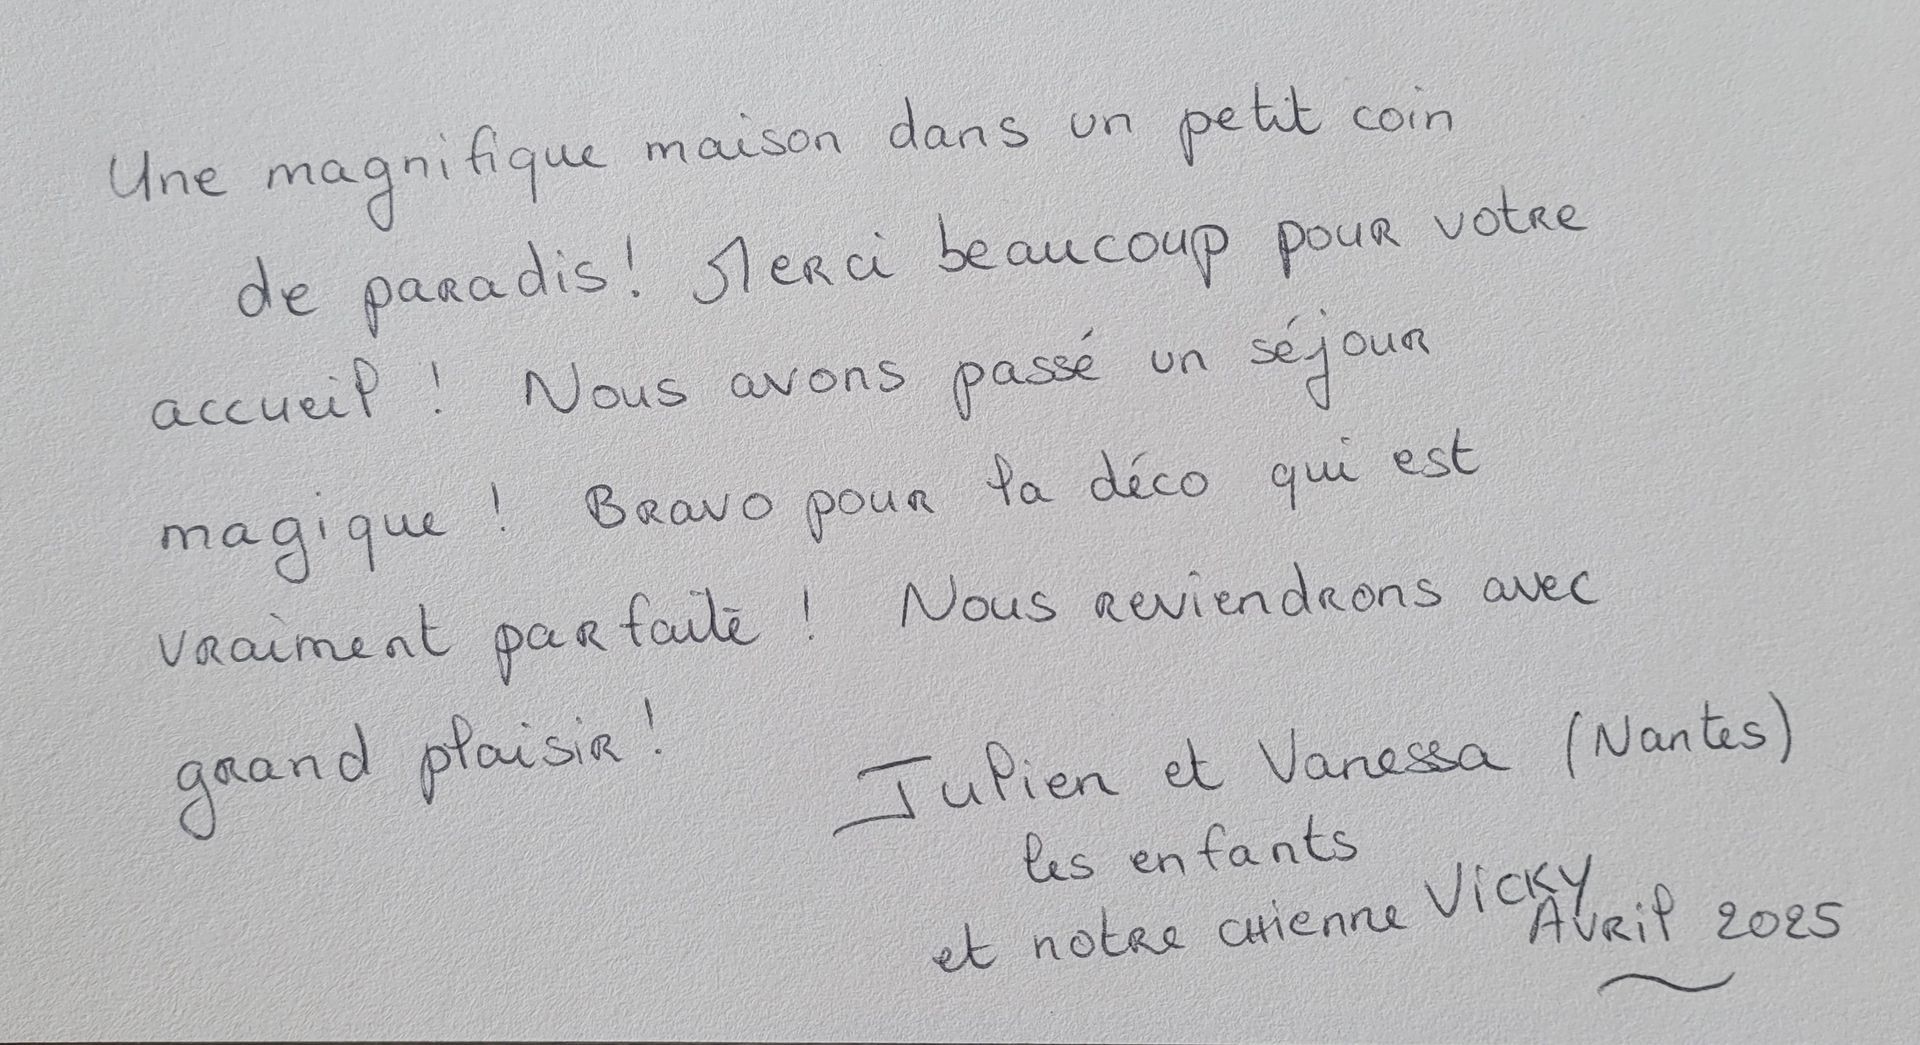 Une magnifique maison dans un petit coin
de paradis! Merci beaucoup pour votre
accueil ! Nous avons passé un séjour
magique ! Bravo pour la déco qui est
vraiment parfaite ! Nous reviendrons avec
grand plaisir !
Julien et Vanessa (Nantes)
les enfants
et notre chienne Vicky
Avril 2025